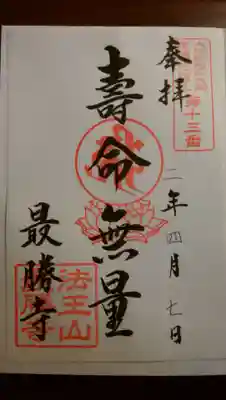 奉拝
二年四月七日
第十三番
壽命無量
最勝寺
法王山
最勝寺